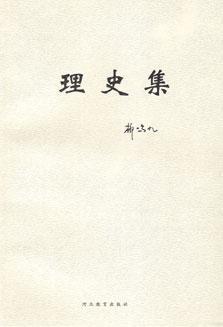 理史集
柳鸣九
河北教育出版社